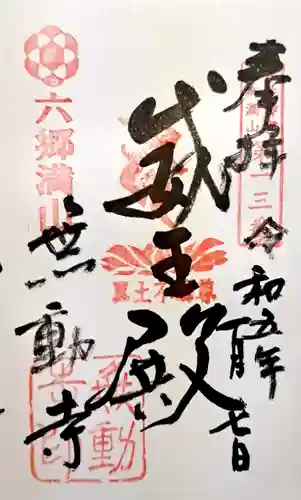 奉拝
令和五年
月七日
威王殿
黒土不動尊
六郷満山
無動寺